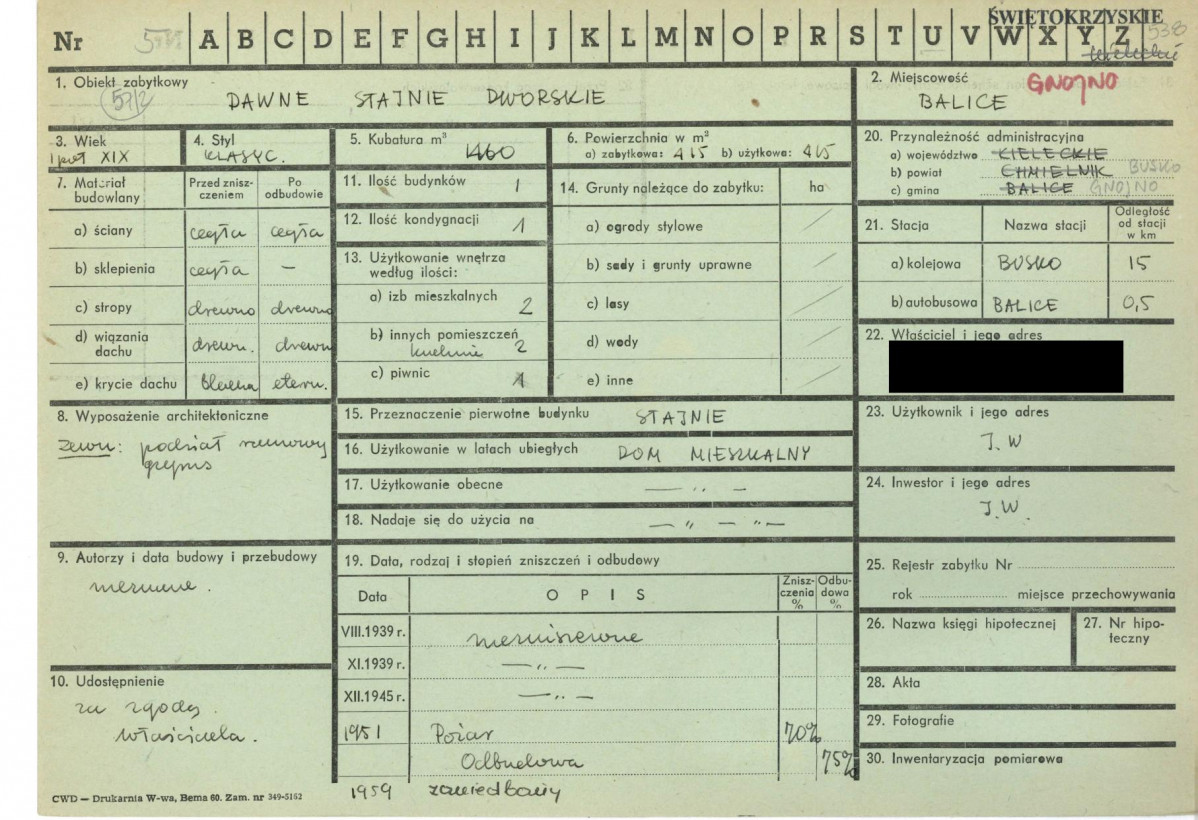 Nr A B C D E F G H I J K L M N O P R S T U V W X Y Z
ŚWIĘTOKRZYSKIE
538
kieleckie
1. Obiekt zabytkowy
DAWNE STAJNIE DWORSKIE
2. Miejscowość GNOJNO
BALICE
3. Wiek
I poł XIX
4. Styl
KLASYC.
5. Kubatura m³ 1460
6. Powierzchnia w m²
a) zabytkowa: 415 b) użytkowa: 415
20. Przynależność administracyjna
a) województwo KIELECKIE
b) powiat CHMIELNIK BUSKO
c) gmina BALICE GNOJNO
7. Materiał budowlany
Przed zniszczeniem
Po odbudowie
a) ściany cegła cegła
b) sklepienia cegła –
c) stropy drewno drewno
d) wiązania dachu drewn. drewn
e) krycie dachu blacha etern.
11. Ilość budynków 1
12. Ilość kondygnacji 1
13. Użytkowanie wnętrza według ilości:
a) izb mieszkalnych 2
b) innych pomieszczeń kuchnie 2
c) piwnic 1
14. Grunty należące do zabytku: ha
a) ogrody stylowe
b) sady i grunty uprawne
c) lasy
d) wody
e) inne
21. Stacja Nazwa stacji Odległość od stacji w km
a) kolejowa BUSKO 15
b) autobusowa BALICE 0,5
22. Właściciel i jego adres
8. Wyposażenie architektoniczne
zewn: podział ramowy
gzyms
15. Przeznaczenie pierwotne budynku STAJNIE
16. Użytkowanie w latach ubiegłych DOM MIESZKALNY
17. Użytkowanie obecne — ,, —
18. Nadaje się do użycia na — ,, — ,, —
23. Użytkownik i jego adres
J.W
24. Inwestor i jego adres
J.W.
9. Autorzy i data budowy i przebudowy
nieznane.
19. Data, rodzaj i stopień zniszczeń i odbudowy
Data O P I S Zniszczenia % Odbudowa %
VIII.1939 r. niezniszczone
XI.1939 r. — ,, —
XII.1945 r. — ,, —
1951 Pożar 70%
Odbudowa 75%
1959 zaniedbany
25. Rejestr zabytku Nr
rok miejsce przechowywania
26. Nazwa księgi hipotecznej
27. Nr hipoteczny
28. Akta
29. Fotografie
30. Inwentaryzacja pomiarowa
10. Udostępnienie
za zgodą
właściciela.
CWD — Drukarnia W-wa, Bema 60. Zam. nr 349-5162